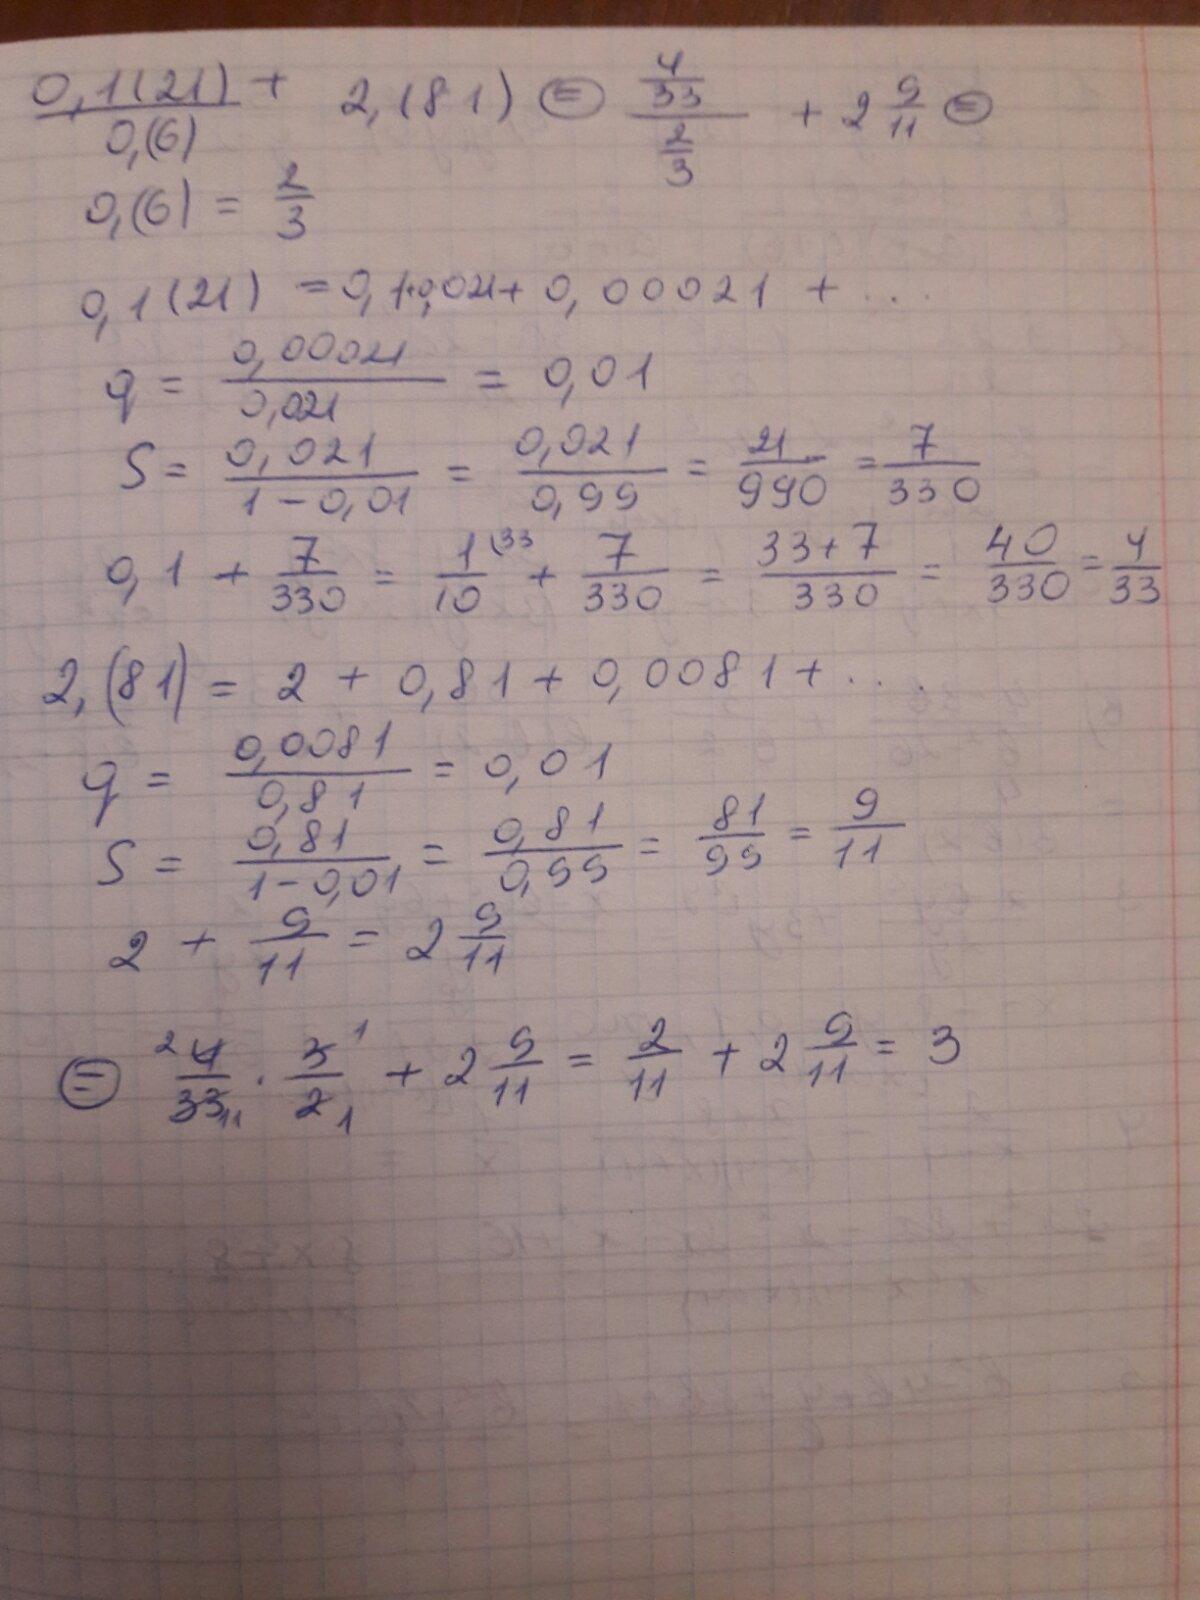 0,1(21)/0,(6) + 2,(81) = (4/33)/(2/3) + 2 9/11 =
0,(6) = 2/3
0,1(21) = 0,1+0,021+ 0,00021 + ...
q = 0,00021/0,021 = 0,01
S = 0,021/(1-0,01) = 0,021/0,99 = 21/990 = 7/330
0,1 + 7/330 = 1/10 (33 + 7/330 = (33+7)/330 = 40/330 = 4/33
2,(81) = 2 + 0,81 + 0,0081 + ...
q = 0,0081/0,81 = 0,01
S = 0,81/(1-0,01) = 0,81/0,99 = 81/99 = 9/11
2 + 9/11 = 2 9/11
= 2 4/33 11 · 3/2 1 1 + 2 9/11 = 2/11 + 2 9/11 = 3